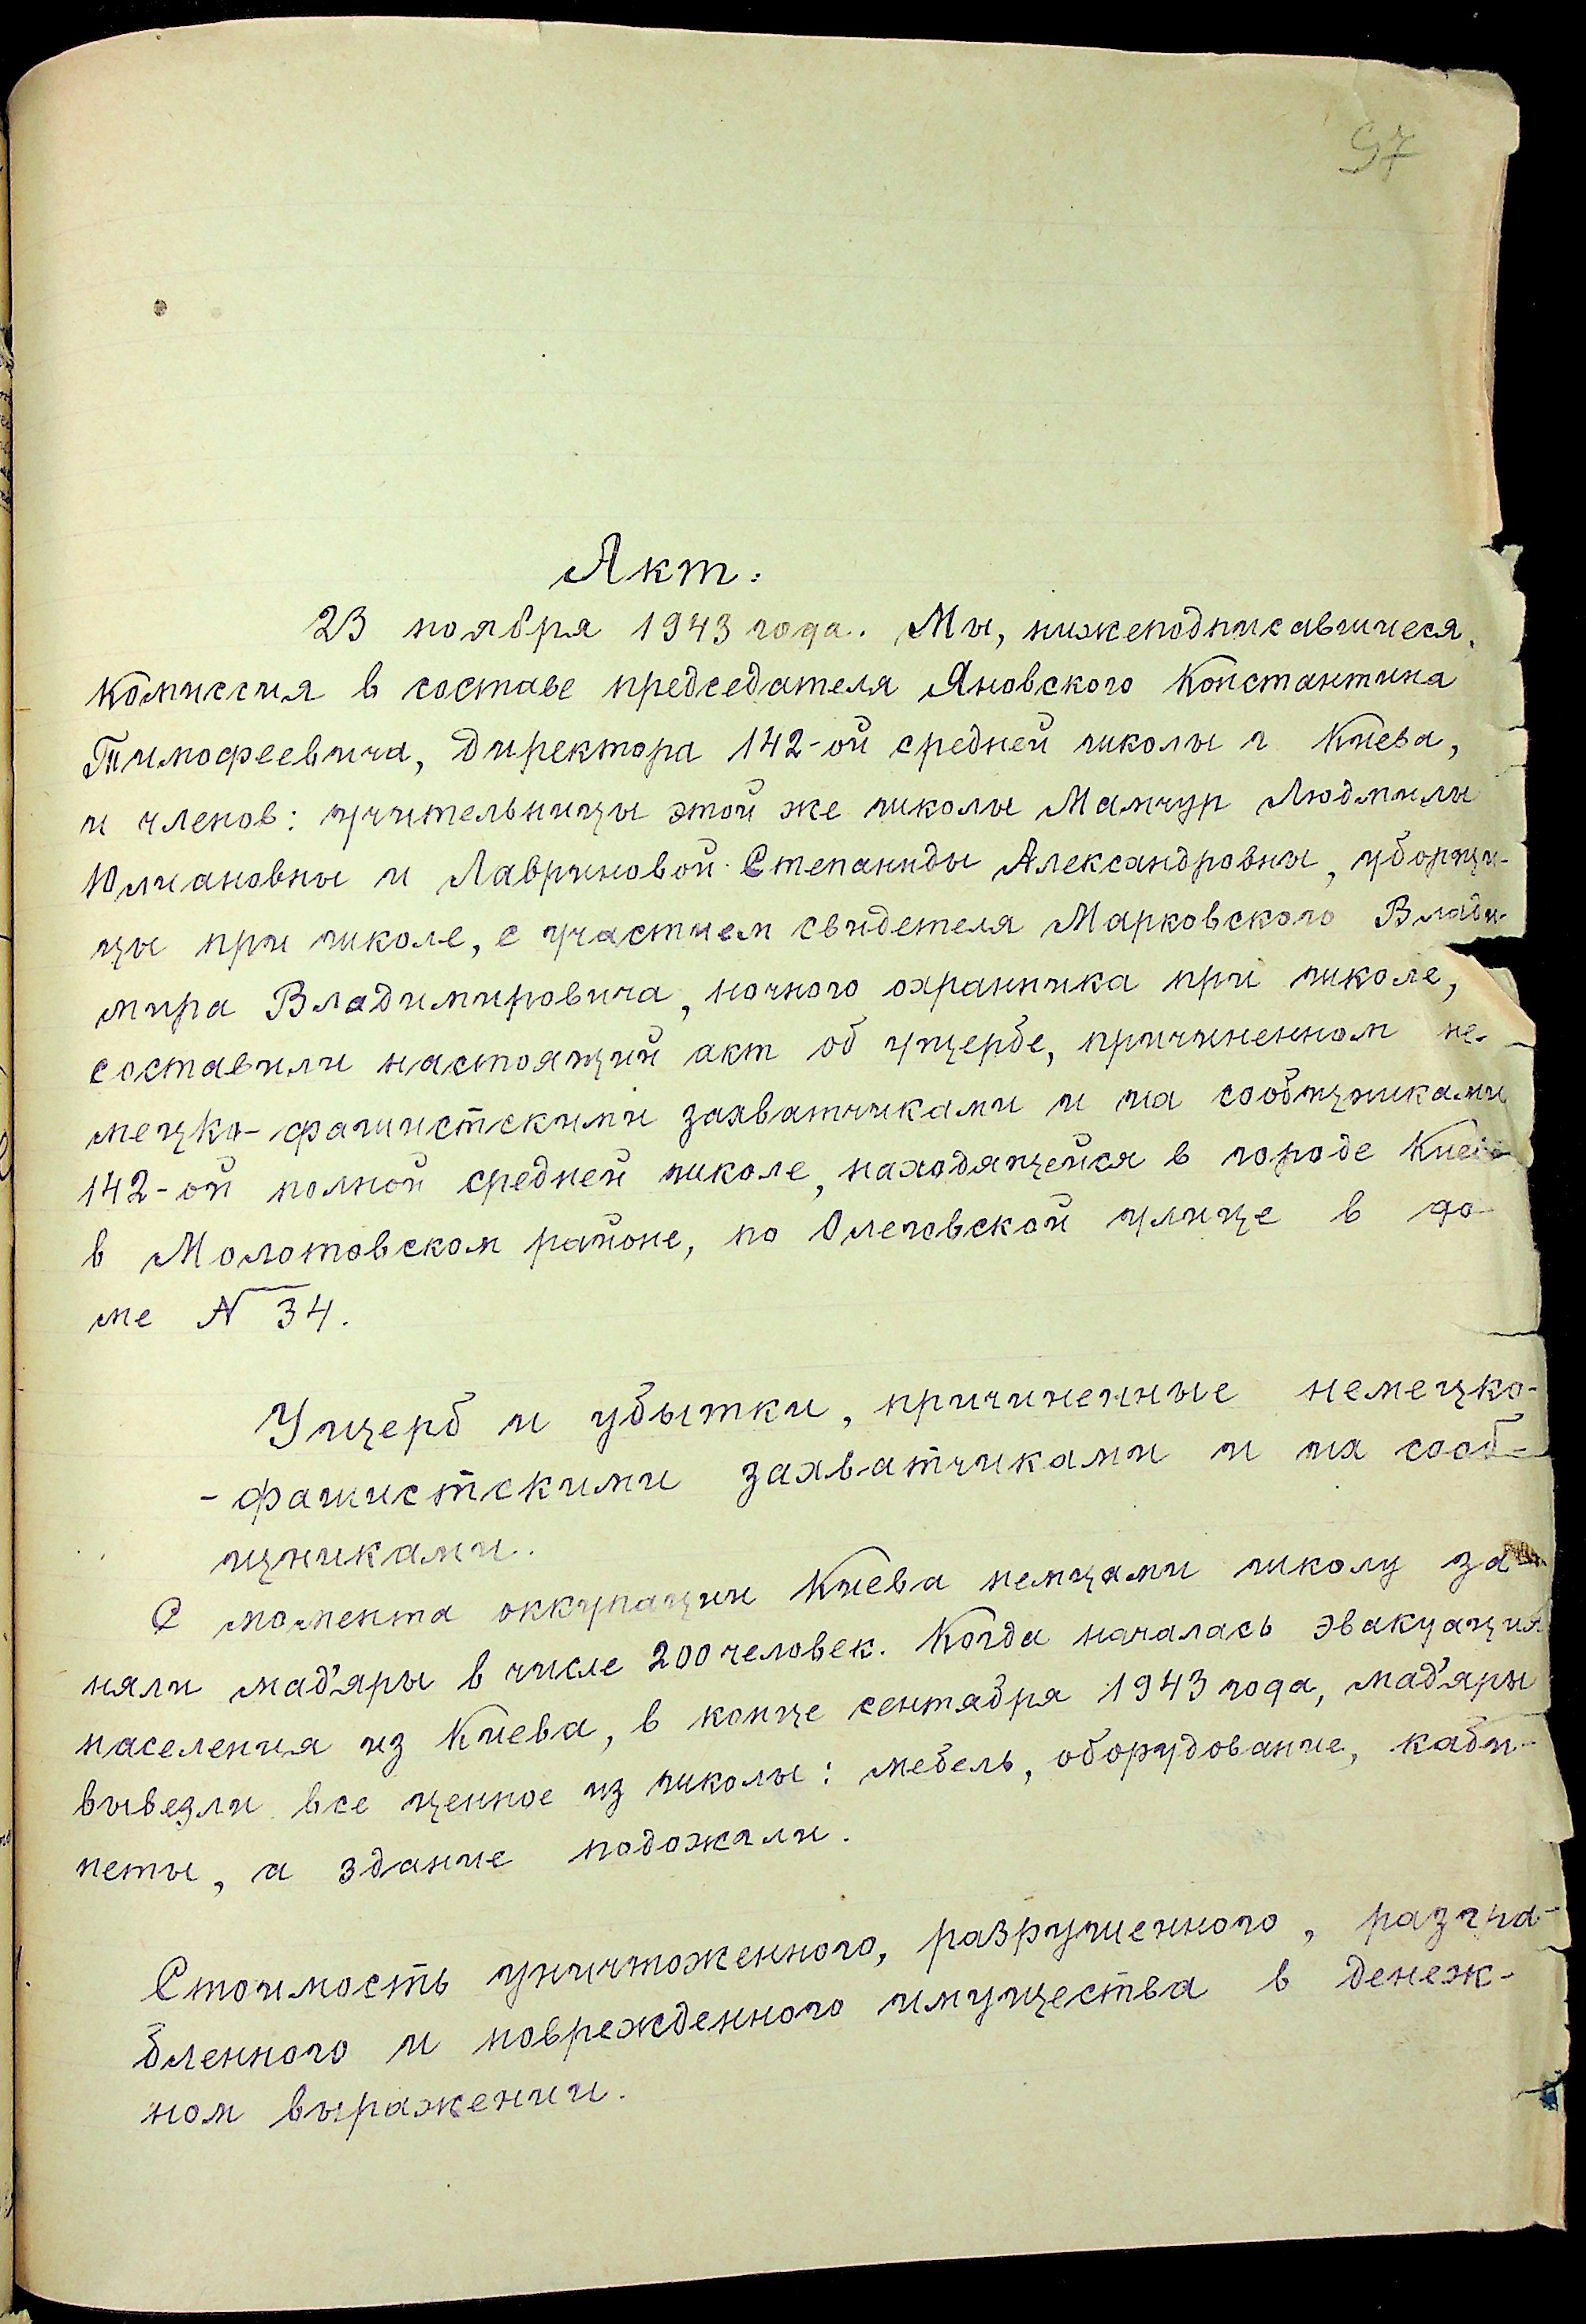 97
Акт:
23 ноября 1943 года. Мы, нижеподписавшиеся,
комиссия в составе председателя Яновского Константина
Тимофеевича, директора 142-ой средней школы г Киева,
и членов: учительницы этой же школы Мамчур Людмилы
Юлиановны и Лавриновой Степаниды Александровны, уборщи-
цы при школе, с участием свидетеля Марковского Влади-
мира Владимировича, ночного охранника при школе,
составили настоящий акт об ущербе, причиненном не-
мецко-фашистскими захватчиками и их сообщниками
142-ой полной средней школе, находящейся в городе Киеве
в Молотовском районе, по Олеговской улице в до-
ме № 34.
Ущерб и убытки, причиненные немецко-
-фашистскими захватчиками и их сооб-
щниками.
С момента оккупации Киева немцами школу за-
няли мад'яры в числе 200 человек. Когда началась эвакуация
населения из Киева, в конце сентября 1943 года, мад'яры
вывезли все ценное из школы: мебель, оборудование, каби-
неты, а здание подожгли.
Стоимость уничтоженного, разрушенного, разгра-
бленного и поврежденного имущества в денеж-
ном выражении.